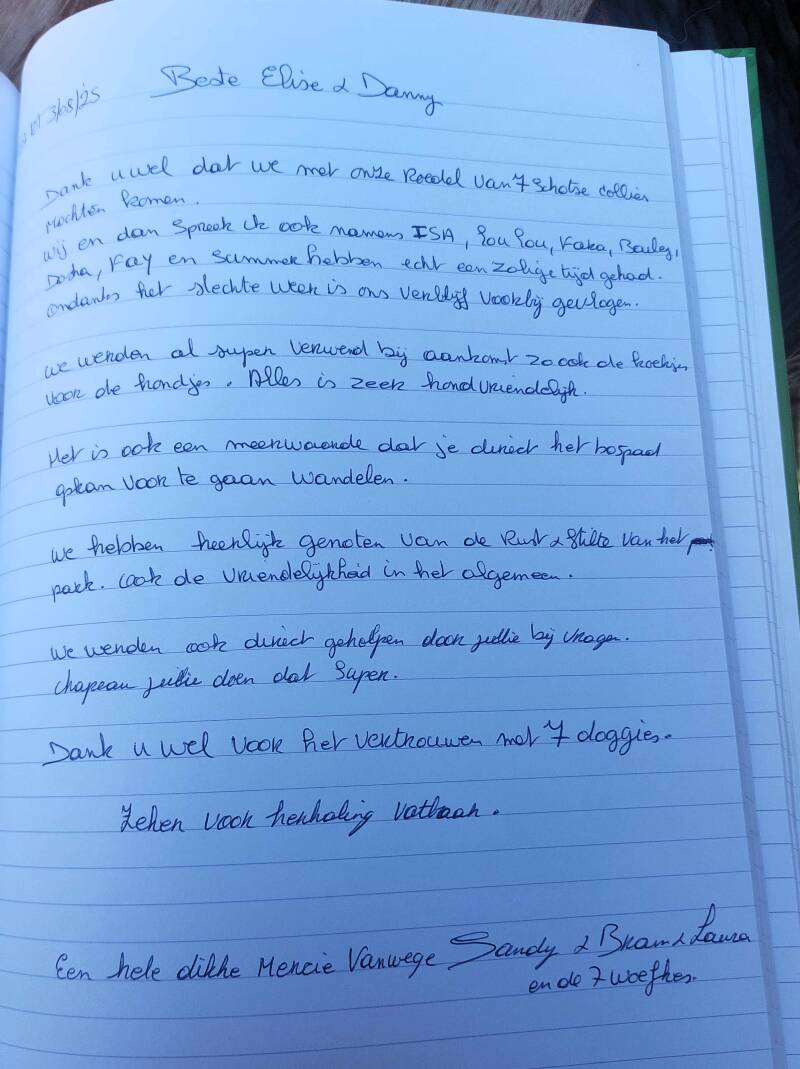 Beste Elise & Danny
tot 3/08/25
Dank u wel dat we met onze Roedel van 7 Schotse collies
mochten komen.
wij en dan spreek ik ook namens ISA, Lou Lou, Kaka, Bailey,
Dasha, Kay en Summer hebben echt een zalige tijd gehad.
ondanks het slechte weer is ons verblijf voorbij gevlogen.
we werden al super verwend bij aankomst zo ook de koekjes
voor de hondjes. Alles is zeer hondvriendelijk.
Het is ook een meerwaarde dat je direct het bospad
op kan voor te gaan wandelen.
we hebben heerlijk genoten van de Rust & Stilte van het
park. Ook de vriendelijkheid in het algemeen.
we werden ook direct geholpen door jullie bij vragen.
chapeau jullie doen dat super.
Dank u wel voor het vertrouwen met 7 doggies.
Zeker voor herhaling vatbaar.
Een hele dikke Mercie vanwege Sandy & Bram & Laura
en de 7 woefkes.